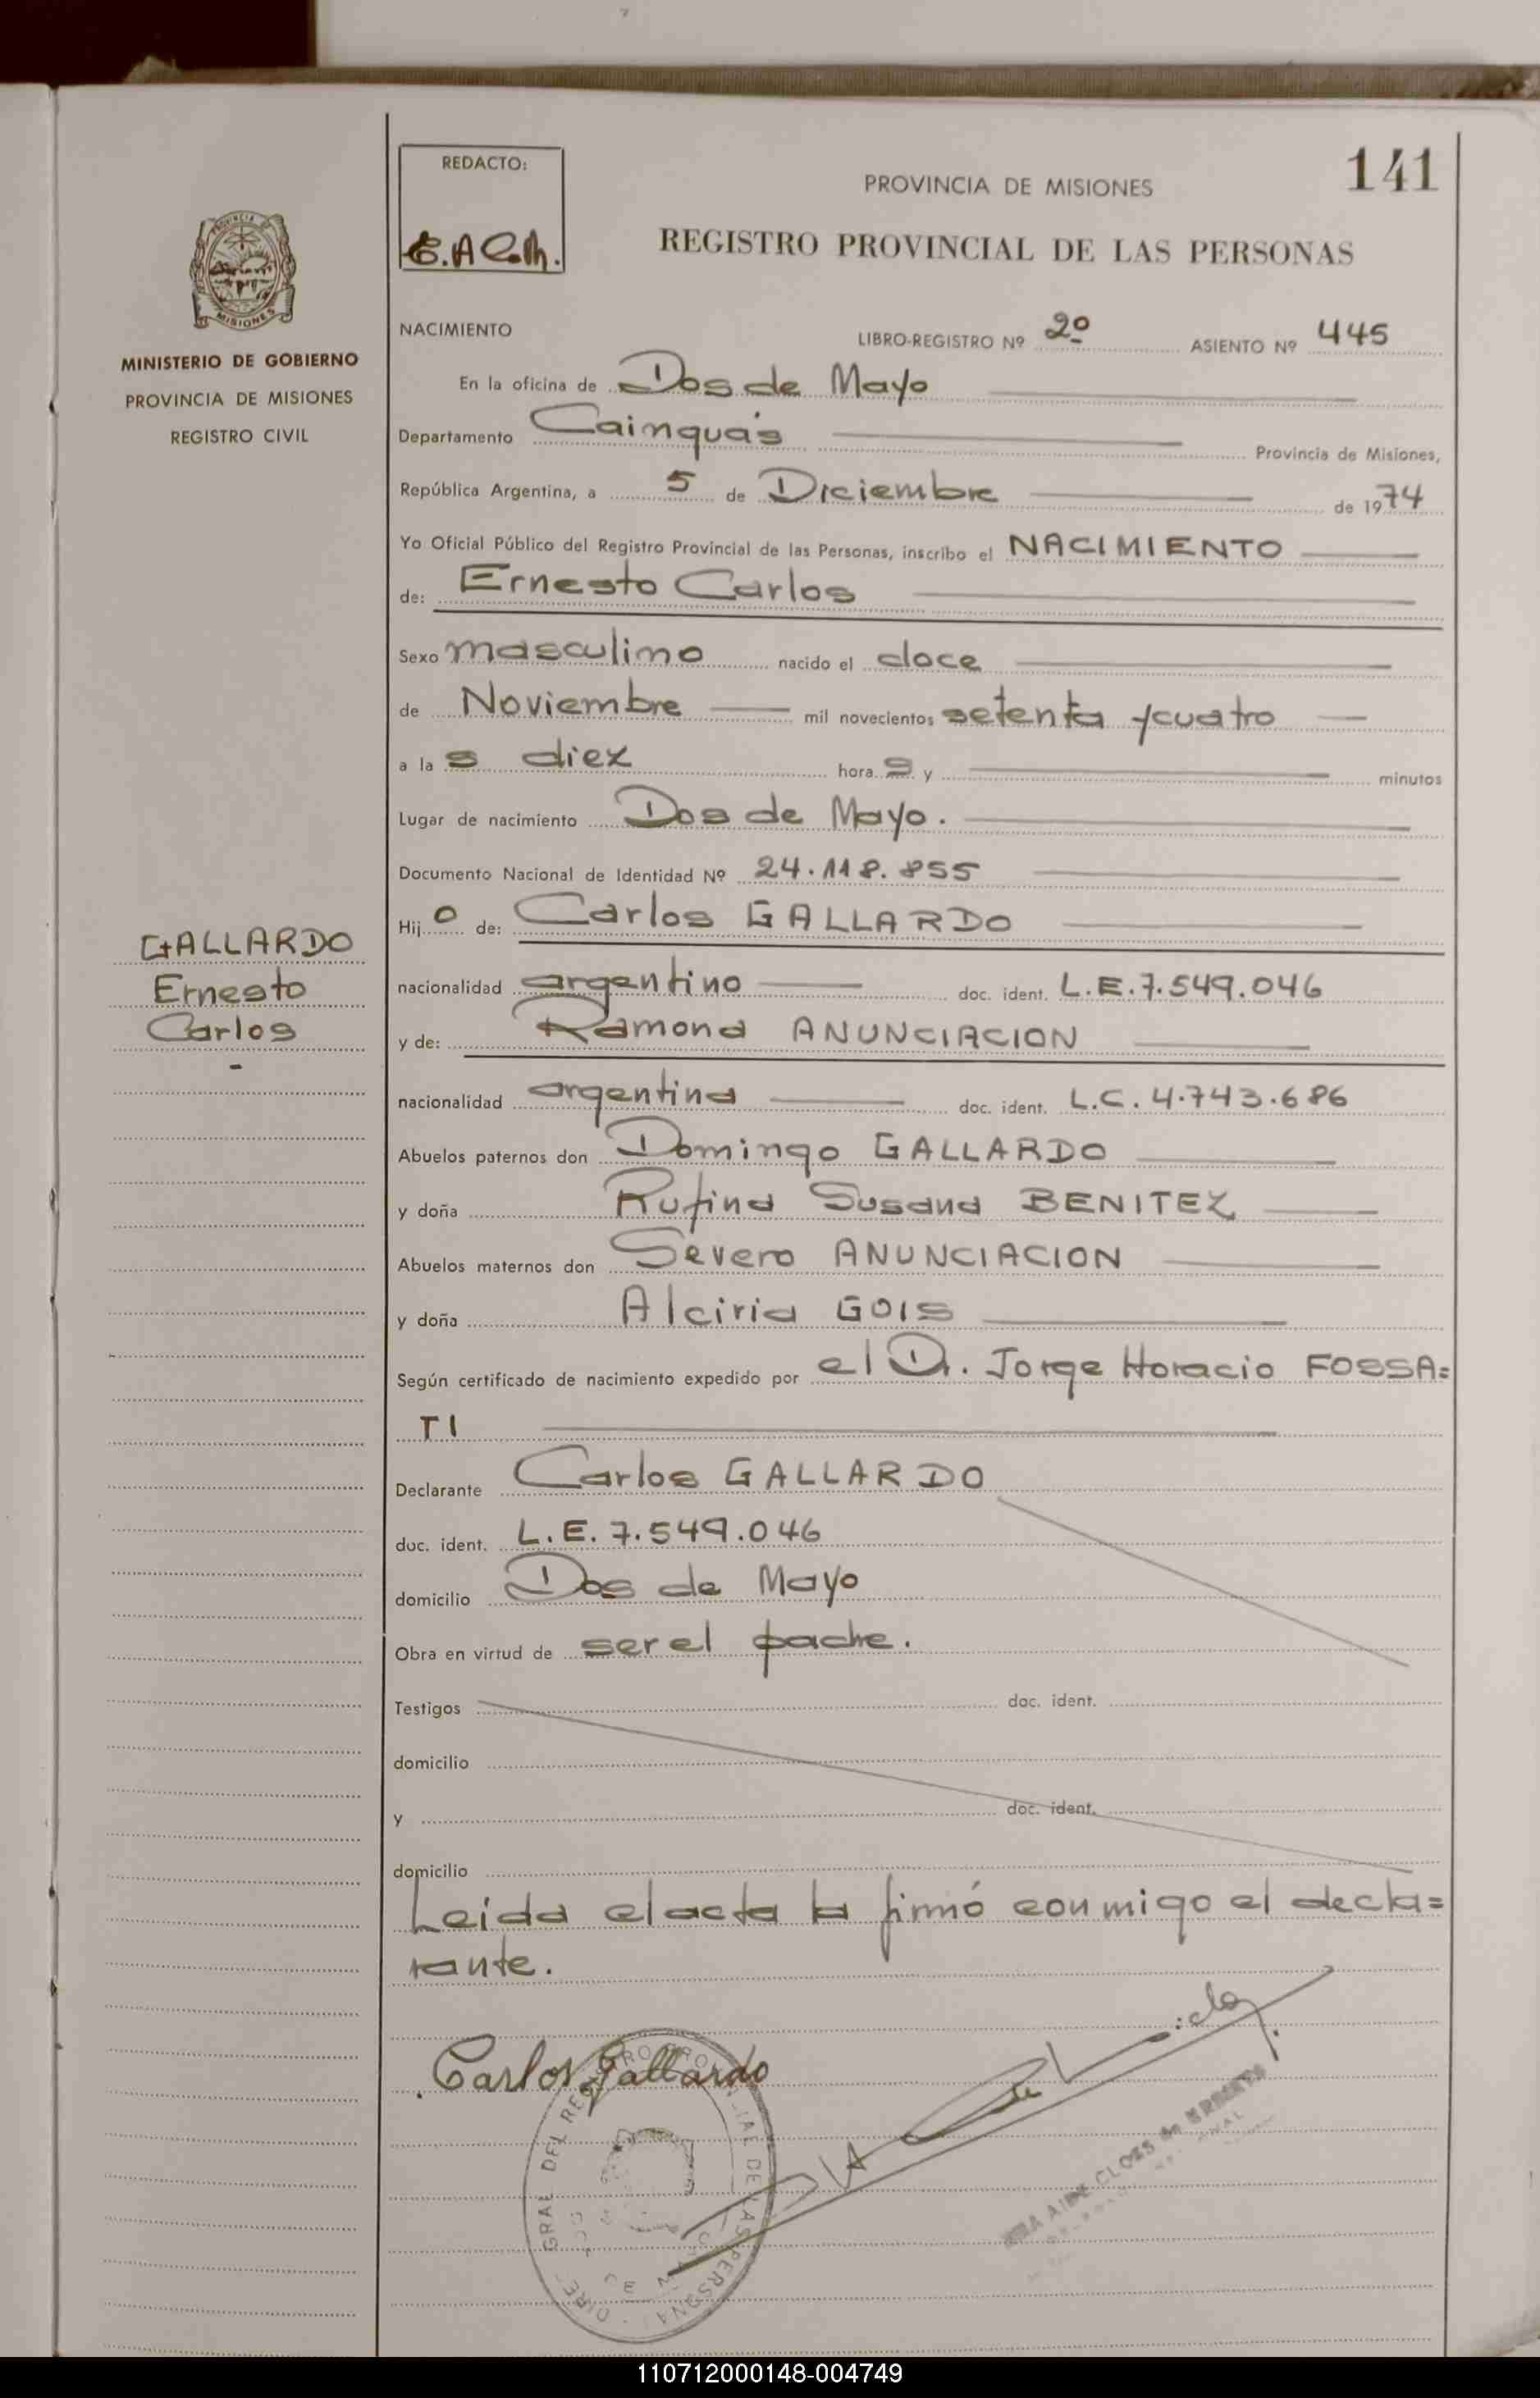 REDACTO:
E.A.C.M.
PROVINCIA DE MISIONES
141
REGISTRO PROVINCIAL DE LAS PERSONAS
MISIONES
MINISTERIO DE GOBIERNO
PROVINCIA DE MISIONES
REGISTRO CIVIL
NACIMIENTO LIBRO-REGISTRO Nº 2º ASIENTO Nº 445
En la oficina de Dos de Mayo
Departamento Cainguás Provincia de Misiones,
República Argentina, a 5 de Diciembre de 1974
Yo Oficial Público del Registro Provincial de las Personas, inscribo el NACIMIENTO
de: Ernesto Carlos
Sexo masculino nacido el doce
de Noviembre mil novecientos setenta y cuatro
a la s diez hora s y minutos
Lugar de nacimiento Dos de Mayo.
Documento Nacional de Identidad Nº 24.118.855
Hij o de: Carlos GALLARDO
GALLARDO
Ernesto
Carlos
-
nacionalidad argentino doc. ident. L.E.7.549.046
y de: Ramona ANUNCIACION
nacionalidad argentina doc. ident. L.C. 4.743.686
Abuelos paternos don Domingo GALLARDO
y doña Rufina Susana BENITEZ
Abuelos maternos don Severo ANUNCIACION
y doña Alciria GOIS
Según certificado de nacimiento expedido por el Dr. Jorge Horacio FOSSA=
TI
Declarante Carlos GALLARDO
doc. ident. L.E. 7.549.046
domicilio Dos de Mayo
Obra en virtud de ser el padre.
Testigos doc. ident.
domicilio
y doc. ident.
domicilio
Leida el acta la firmó conmigo el decla=
rante.
Carlos Gallardo
DIRE. GRAL DEL REGISTRO PROVINCIAL DE LAS PERSONAS
110712000148-004749